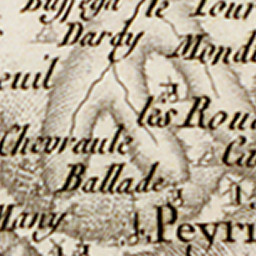 Bussega le Tour
Dardy Mond
euil
lès Rou
Chevraule
Ca
Ballade
Many
Peyri